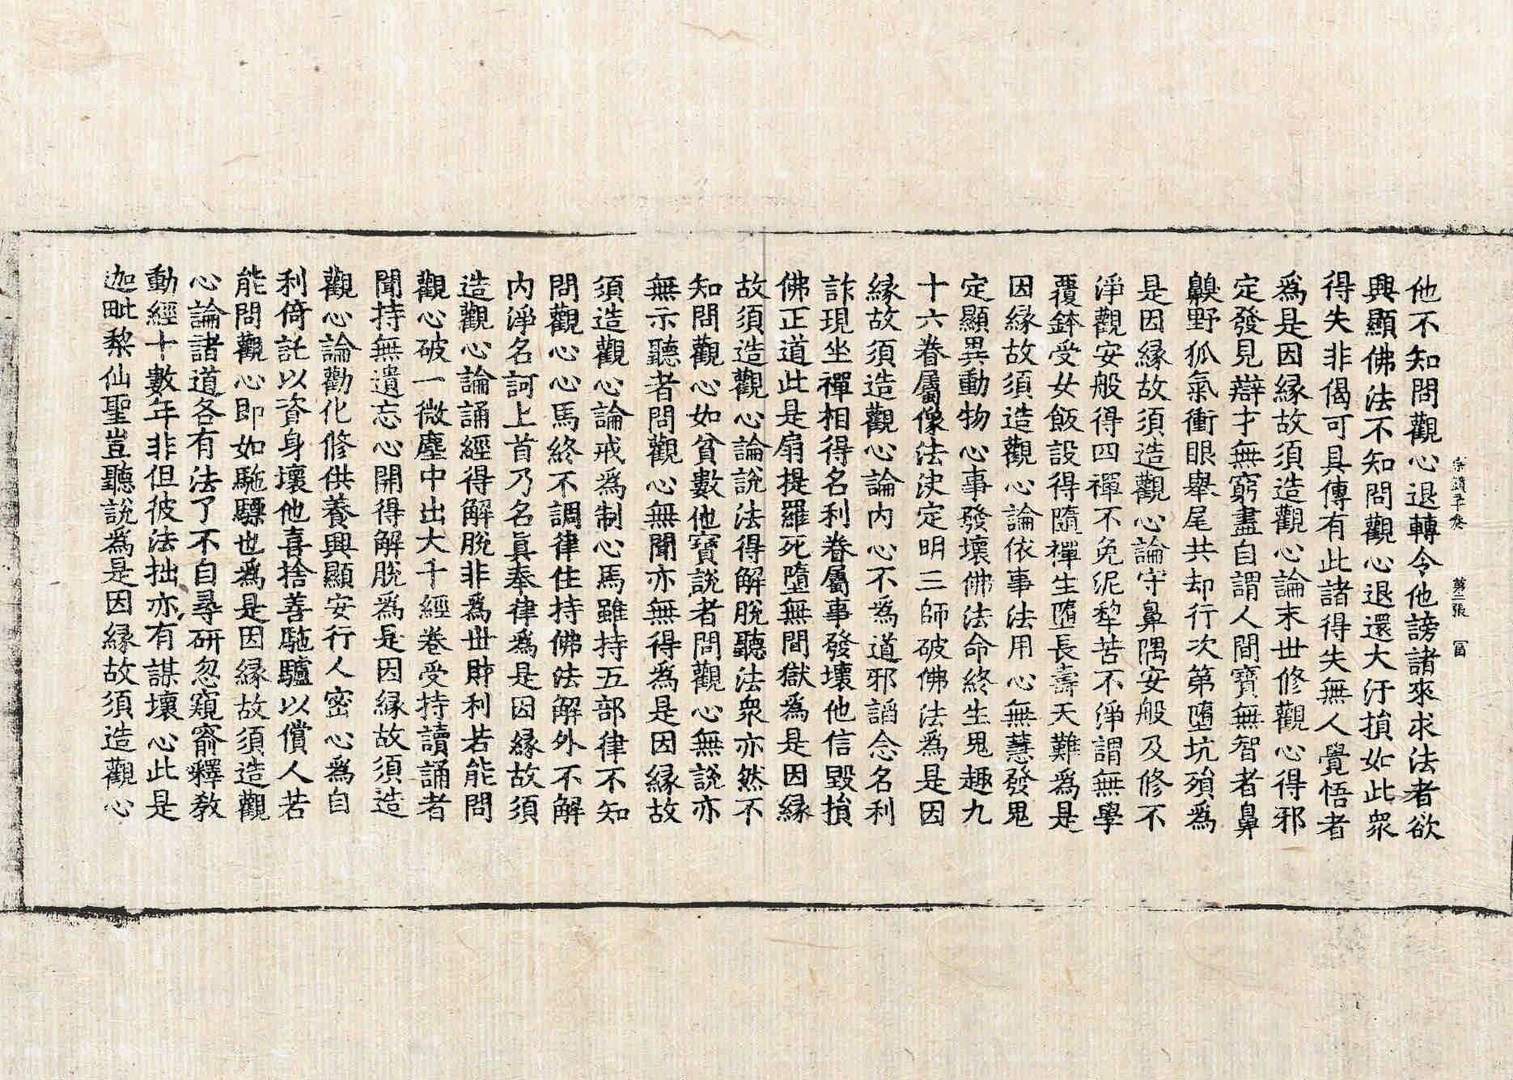 宗鏡 卷 第三張 冨
他不知問觀心退轉令他謗諸來求法者欲
興顯佛法不知問觀心退還大汙損如此衆
得失非偈可具傳有此諸得失無人覺悟者
爲是因縁故須造觀心論末世修觀心得邪
定發見辯才無窮盡自謂人間寶無智者鼻
齅野狐氣衝眼舉尾共却行次第墮坑殞爲
是因縁故須造觀心論守鼻隅安般及修不
淨觀安般得四禪不免泥犂苦不淨謂無學
覆鉢受女飯設得隨禪生墮長壽天難爲是
因縁故須造觀心論依事法用心無慧發鬼
定顯異動物心事發壞佛法命終生鬼趣九
十六眷屬像法決定明三師破佛法爲是因
縁故須造觀心論内心不爲道邪謟念名利
詐現坐禪相得名利眷屬事發壞他信毀損
佛正道此是扇提羅死墮無間獄爲是因縁
故須造觀心論說法得解脫聽法衆亦然不
知問觀心如貧數他寶說者問觀心無說亦
無示聽者問觀心無聞亦無得爲是因縁故
須造觀心論戒爲制心馬雖持五部律不知
問觀心心馬終不調律住持佛法解外不解
内淨名訶上首乃名眞奉律爲是因縁故須
造觀心論誦經得解脫非爲世財利若能問
觀心破一微塵中出大千經卷受持讀誦者
聞持無遺忘心開得解脫爲是因縁故須造
觀心論勸化修供養興顯安行人密心爲自
利倚託以資身壞他喜捨善駞驢以償人若
能問觀心即如駞驃也爲是因縁故須造觀
心論諸道各有法了不自尋研忽窺窬釋教
動經十數年非但彼法拙亦有謀壞心此是
迦毗黎仙聖豈聽說爲是因縁故須造觀心